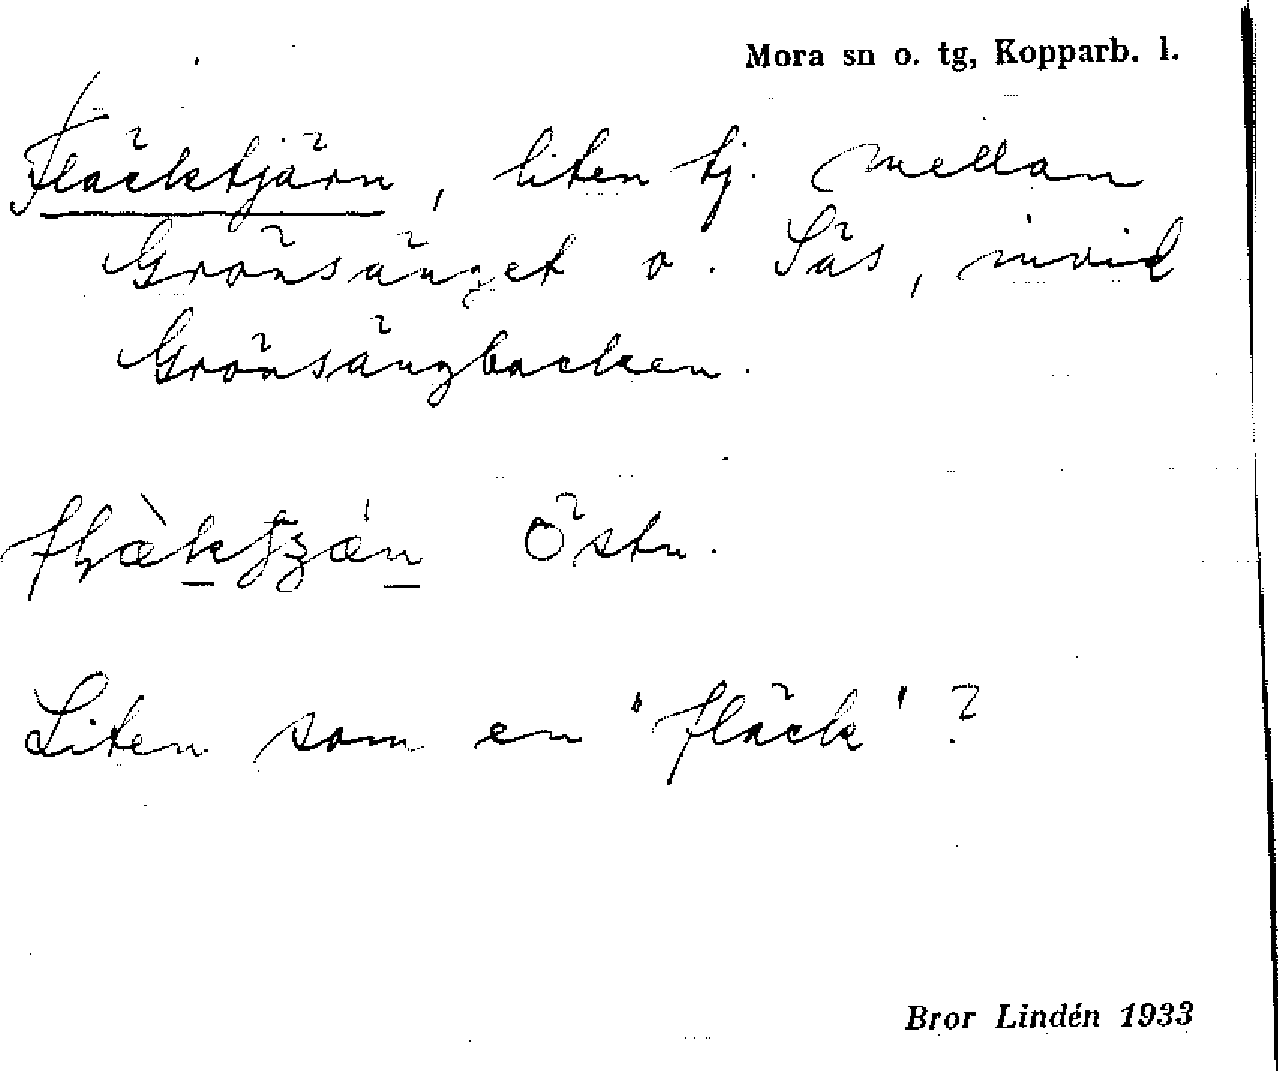 Mora sn o. tg, Kopparb. l.
Fläcktjärn, liten tj. mellan
Grönsänget o. Säs, invid
Grönsängbacken.
Östn.
Liten som en "fläck"?
Bror Lindén 1933